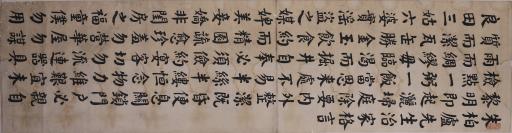 朱柏廬先生治家格言
黎明即起灑掃庭除要內外整潔既昏便息關鎖門戶必親自
檢點一粥一飯當思來處不易半絲半縷恆念物力維艱宜未
雨綢繆毋臨渴而掘井自奉必須儉約宴客切勿留連器具
質而潔瓦缶勝金玉飲食約而精園蔬愈珍饈勿營華屋勿謀
良田三姑六婆實淫盜之媒婢美妾嬌非閨房之福僮僕勿用